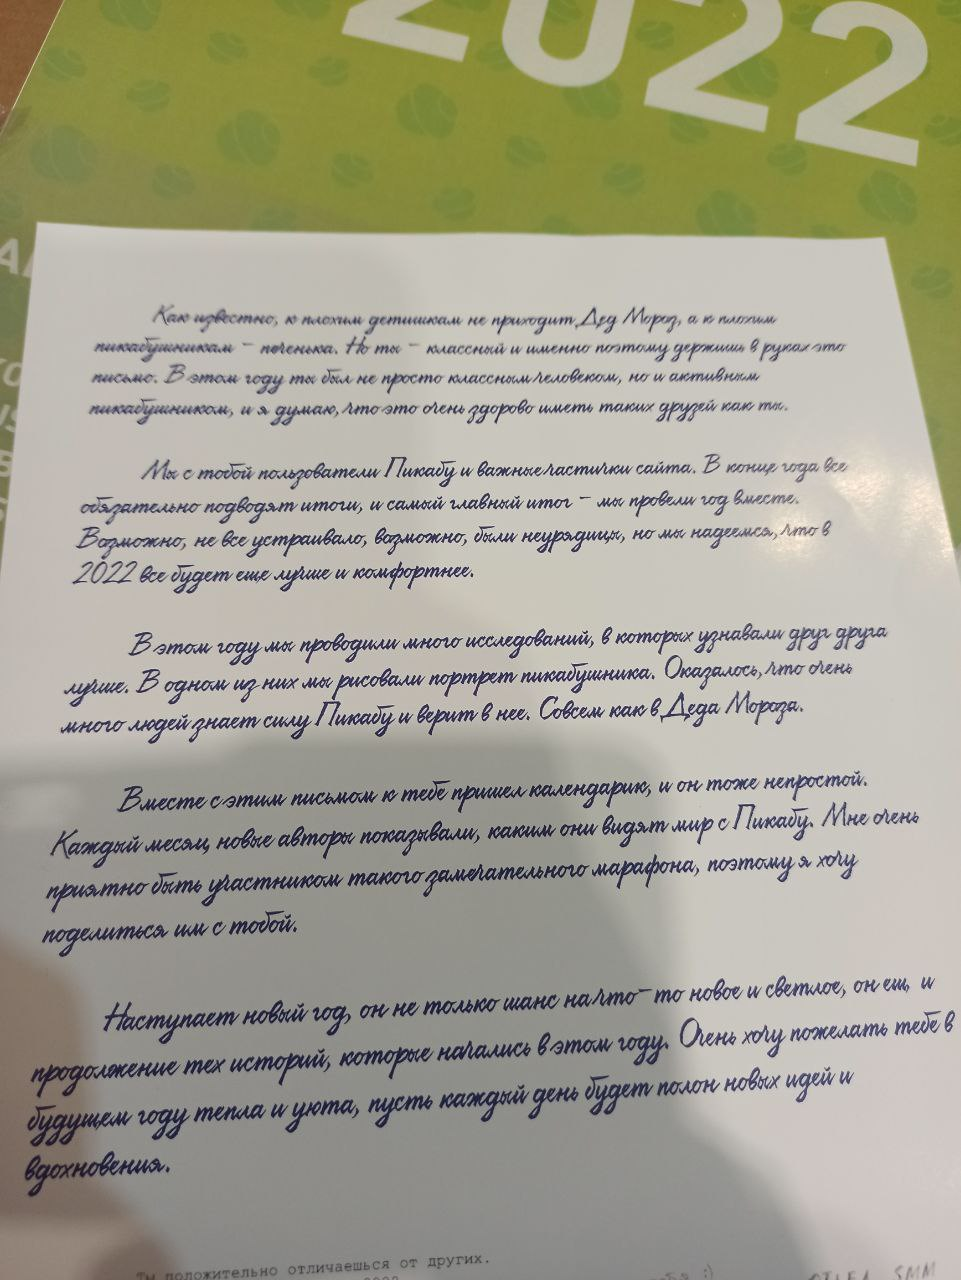 2022
Как известно, к плохим детишкам не приходит Дед Мороз, а к плохим
пикабушникам – печенька. Но ты – классный и именно поэтому держишь в руках это
письмо. В этом году ты был не просто классным человеком, но и активным
пикабушником, и я думаю, что это очень здорово иметь таких друзей как ты.
Мы с тобой пользователи Пикабу и важные частички сайта. В конце года все
обязательно подводят итоги, и самый главный итог – мы провели год вместе.
Возможно, не все устраивало, возможно, были неурядицы, но мы надеемся, что в
2022 все будет еще лучше и комфортнее.
В этом году мы проводили много исследований, в которых узнавали друг друга
лучше. В одном из них мы рисовали портрет пикабушника. Оказалось, что очень
много людей знает силу Пикабу и верит в нее. Совсем как в Деда Мороза.
Вместе с этим письмом к тебе пришел календарик, и он тоже непростой.
Каждый месяц новые авторы показывали, каким они видят мир с Пикабу. Мне очень
приятно быть участником такого замечательного марафона, поэтому я хочу
поделиться им с тобой.
Наступает новый год, он не только шанс на что-то новое и светлое, он ещ и
продолжение тех историй, которые начались в этом году. Очень хочу пожелать тебе в
будущем году тепла и уюта, пусть каждый день будет полон новых идей и
вдохновения.
Ты положительно отличаешься от других.
:)
SMM